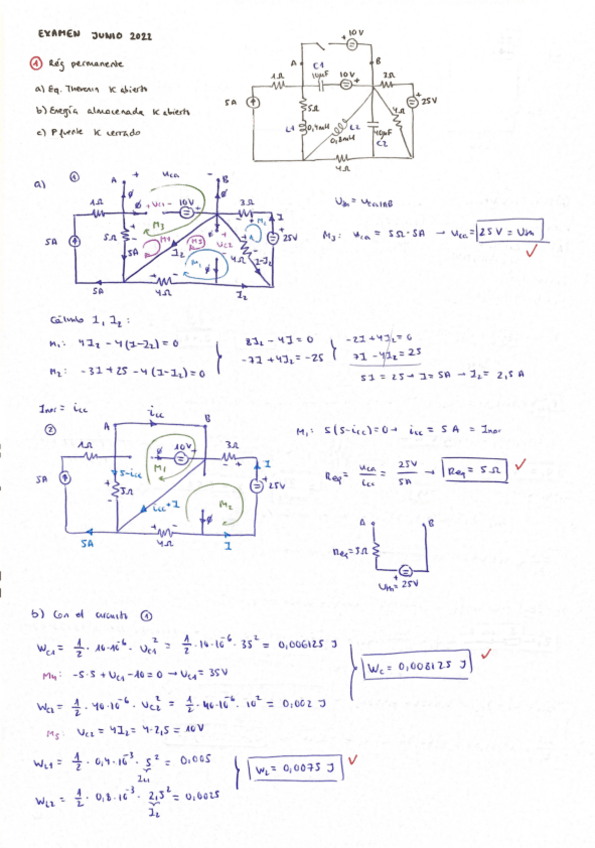 EXAMEN JUNIO 2022
① Rég permanente
a) Eq. Thevenin K abierto
b) Energía almacenada K abierto
c) P fuente K cerrado
10V
A
B
C1
1Ω
10µF
10V
3Ω
5A
5Ω
4Ω
25V
L1
0,4mH
L2
0,8mH
40µF
C2
4Ω
a)
①
A
+
uca
-
B
1Ω
+ Uc1 -
10V
3Ω
M3
5A
5Ω
5A
M4
M5
I2
UC2
M2
I
25V
4Ω
I-I2
M1
5A
4Ω
I2
Uth = uca en AB
M3: uca = 5Ω·5A → uca = 25V = Uth
Cálculo I, I2:
M1: 4I2 - 4(I-I2) = 0
8I2 - 4I = 0
-2I + 4I2 = 0
M2: -3I + 25 - 4(I-I2) = 0
-7I + 4I2 = -25
7I - 4I2 = 25
5I = 25 → I = 5A → I2 = 2,5 A
Inor = icc
②
icc
A
B
1Ω
10V
3Ω
5A
5-icc
M1
I
5Ω
icc+I
M2
25V
5A
4Ω
I
M1: 5(5-icc) = 0 → icc = 5A = Inor
Req = uca/icc = 25V/5A → Req = 5Ω
A
B
Req = 5Ω
Uth = 25V
b) Con el circuito ①
WC1 = 1/2 · 10·10⁻⁶ · UC1² = 1/2 · 10·10⁻⁶ · 35² = 0,006125 J
M4: -5·5 + UC1 - 10 = 0 → UC1 = 35V
WC = 0,008125 J
WC2 = 1/2 · 40·10⁻⁶ · UC2² = 1/2 · 40·10⁻⁶ · 10² = 0,002 J
M5: UC2 = 4I2 = 4·2,5 = 10V
WL1 = 1/2 · 0,4·10⁻³ · 5² = 0,005
IL1
WL = 0,0075 J
WL2 = 1/2 · 0,8·10⁻³ · 2,5² = 0,0025
I2